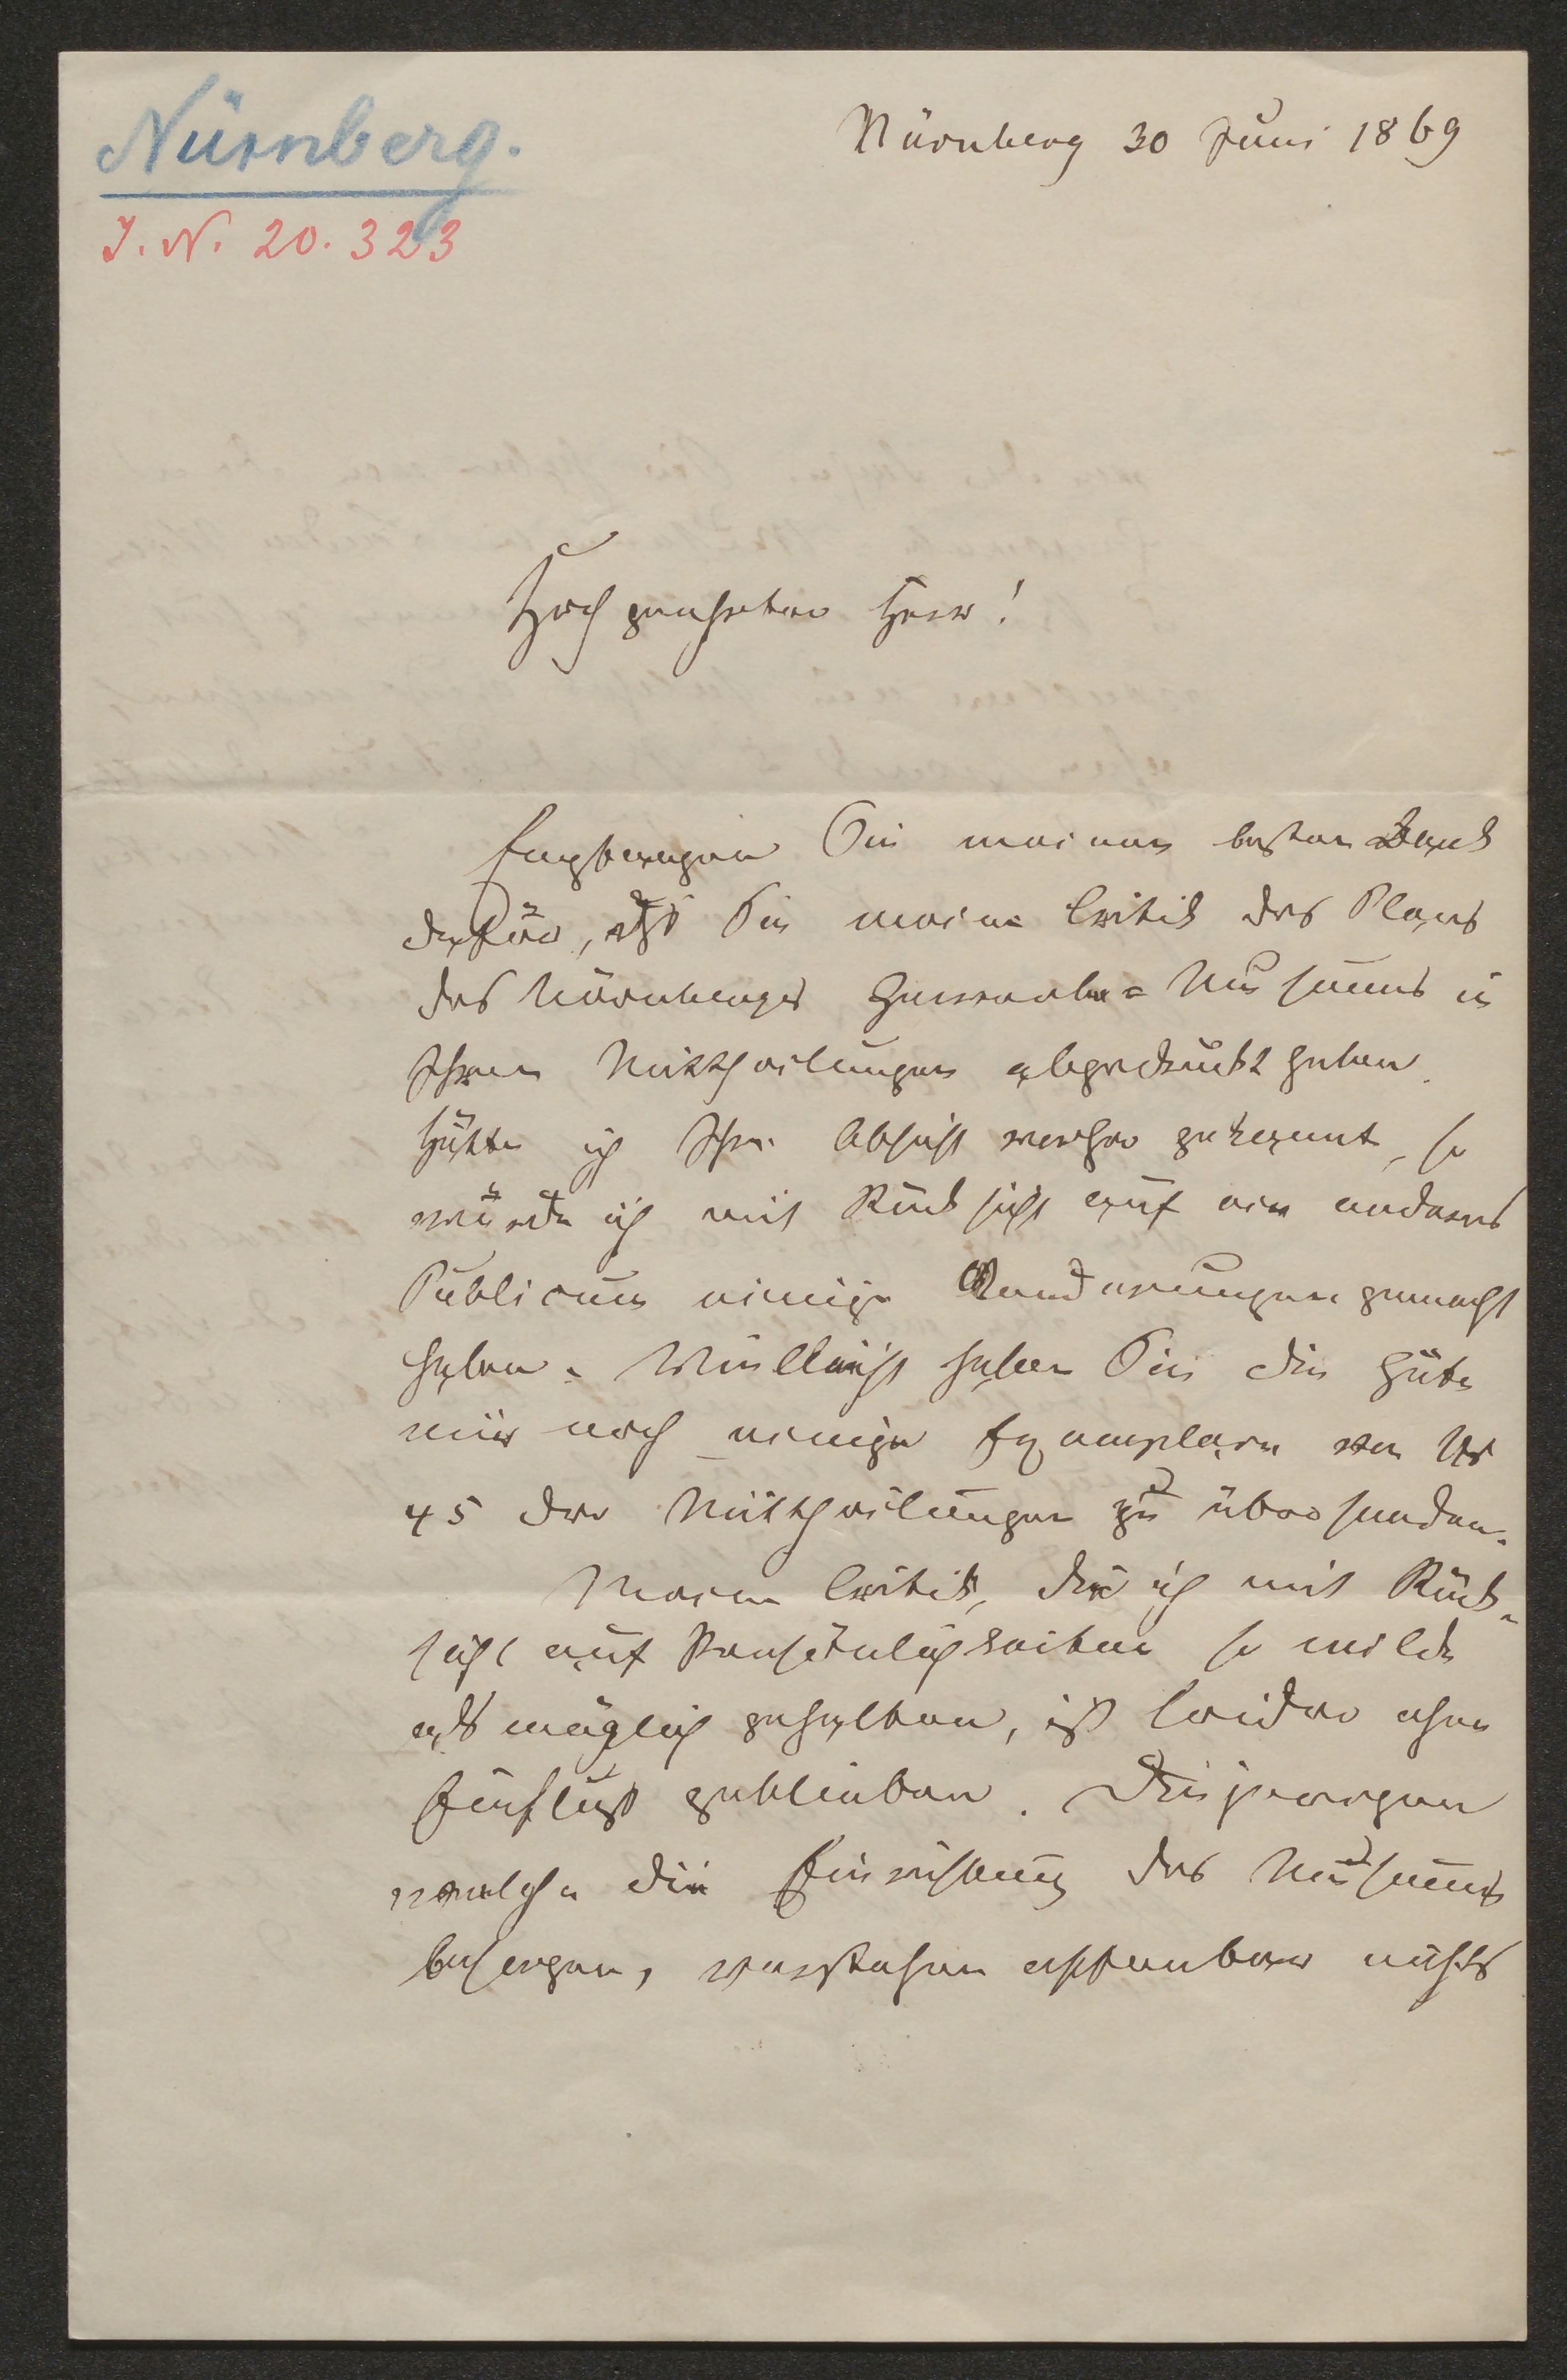 Nürnberg.
J. N. 20.323
Nürnberg 30 Juni 1869
Hochgeehrter Herr!
Empfangen Sie meinen besten Dank
dafür, daß Sie meine Critik des Plans
des Nürnberger Gewerbe=Museums in
Ihren Mittheilungen abgedruckt haben.
Hätte ich Ihre Absicht vorher gekannt, so
würde ich mit Rücksicht auf ein anderes
Publicum einige Aenderungen gemacht
haben. Vielleicht haben Sie die Güte
mir noch einige Exemplare von Nr
45 der Mittheilungen zu übersenden.
Meine Critik, die ich mit Rück-
sicht auf Persönlichkeiten so milde
als möglich gehalten, ist leider ohne
Einfluß geblieben. Diejenigen
welche die Einrichtung des Museums
besorgen, verstehen offenbar nichts